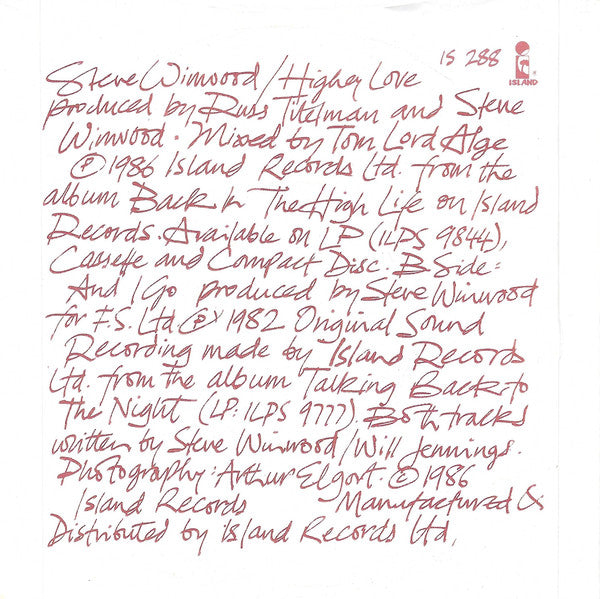 IS 288
ISLAND
Steve Winwood / Higher Love
produced by Russ Titelman and Steve
Winwood. Mixed by Tom Lord Alge
Ⓟ 1986 Island Records Ltd. from the
album Back In The High Life on Island
Records. Available on LP (ILPS 9844),
Cassette and Compact Disc. B Side:
And I Go produced by Steve Winwood
for F.S. Ltd Ⓟ 1982 Original Sound
Recording made by Island Records
Ltd. from the album Talking Back to
The Night (LP: ILPS 9777). Both tracks
written by Steve Winwood / Will Jennings.
Photography: Arthur Elgort. © 1986
Island Records Manufactured &
Distributed by Island Records Ltd.